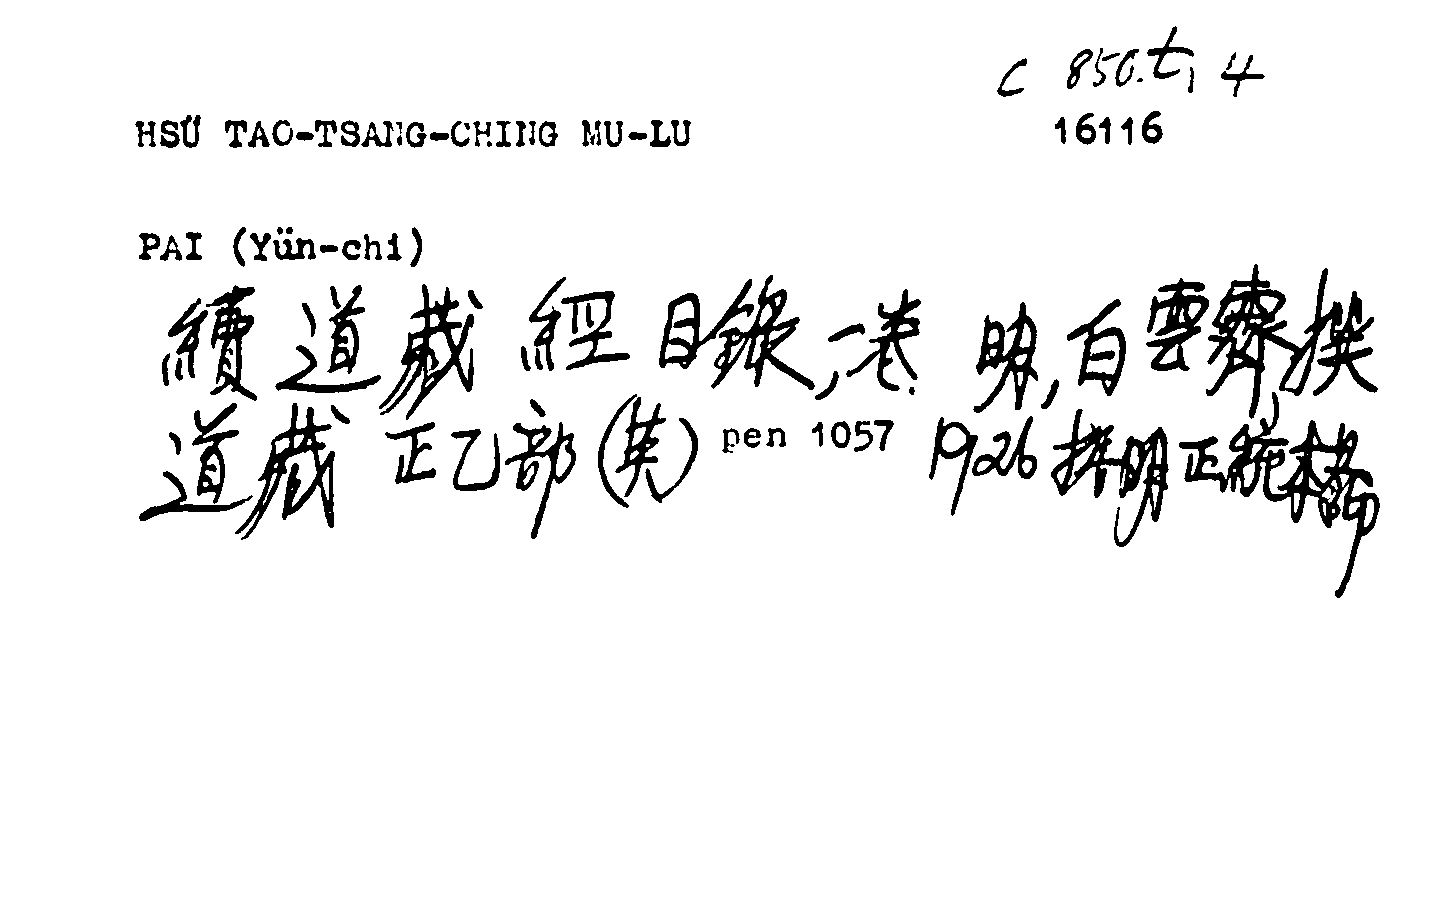 C 850.t, 4
HSÜ TAO-TSANG-CHING MU-LU 16116
PAI (Yün-chi)
續道藏經目錄,一卷. 明,白雲霽撰
道藏正乙部(英) pen 1057 1926 明正統本